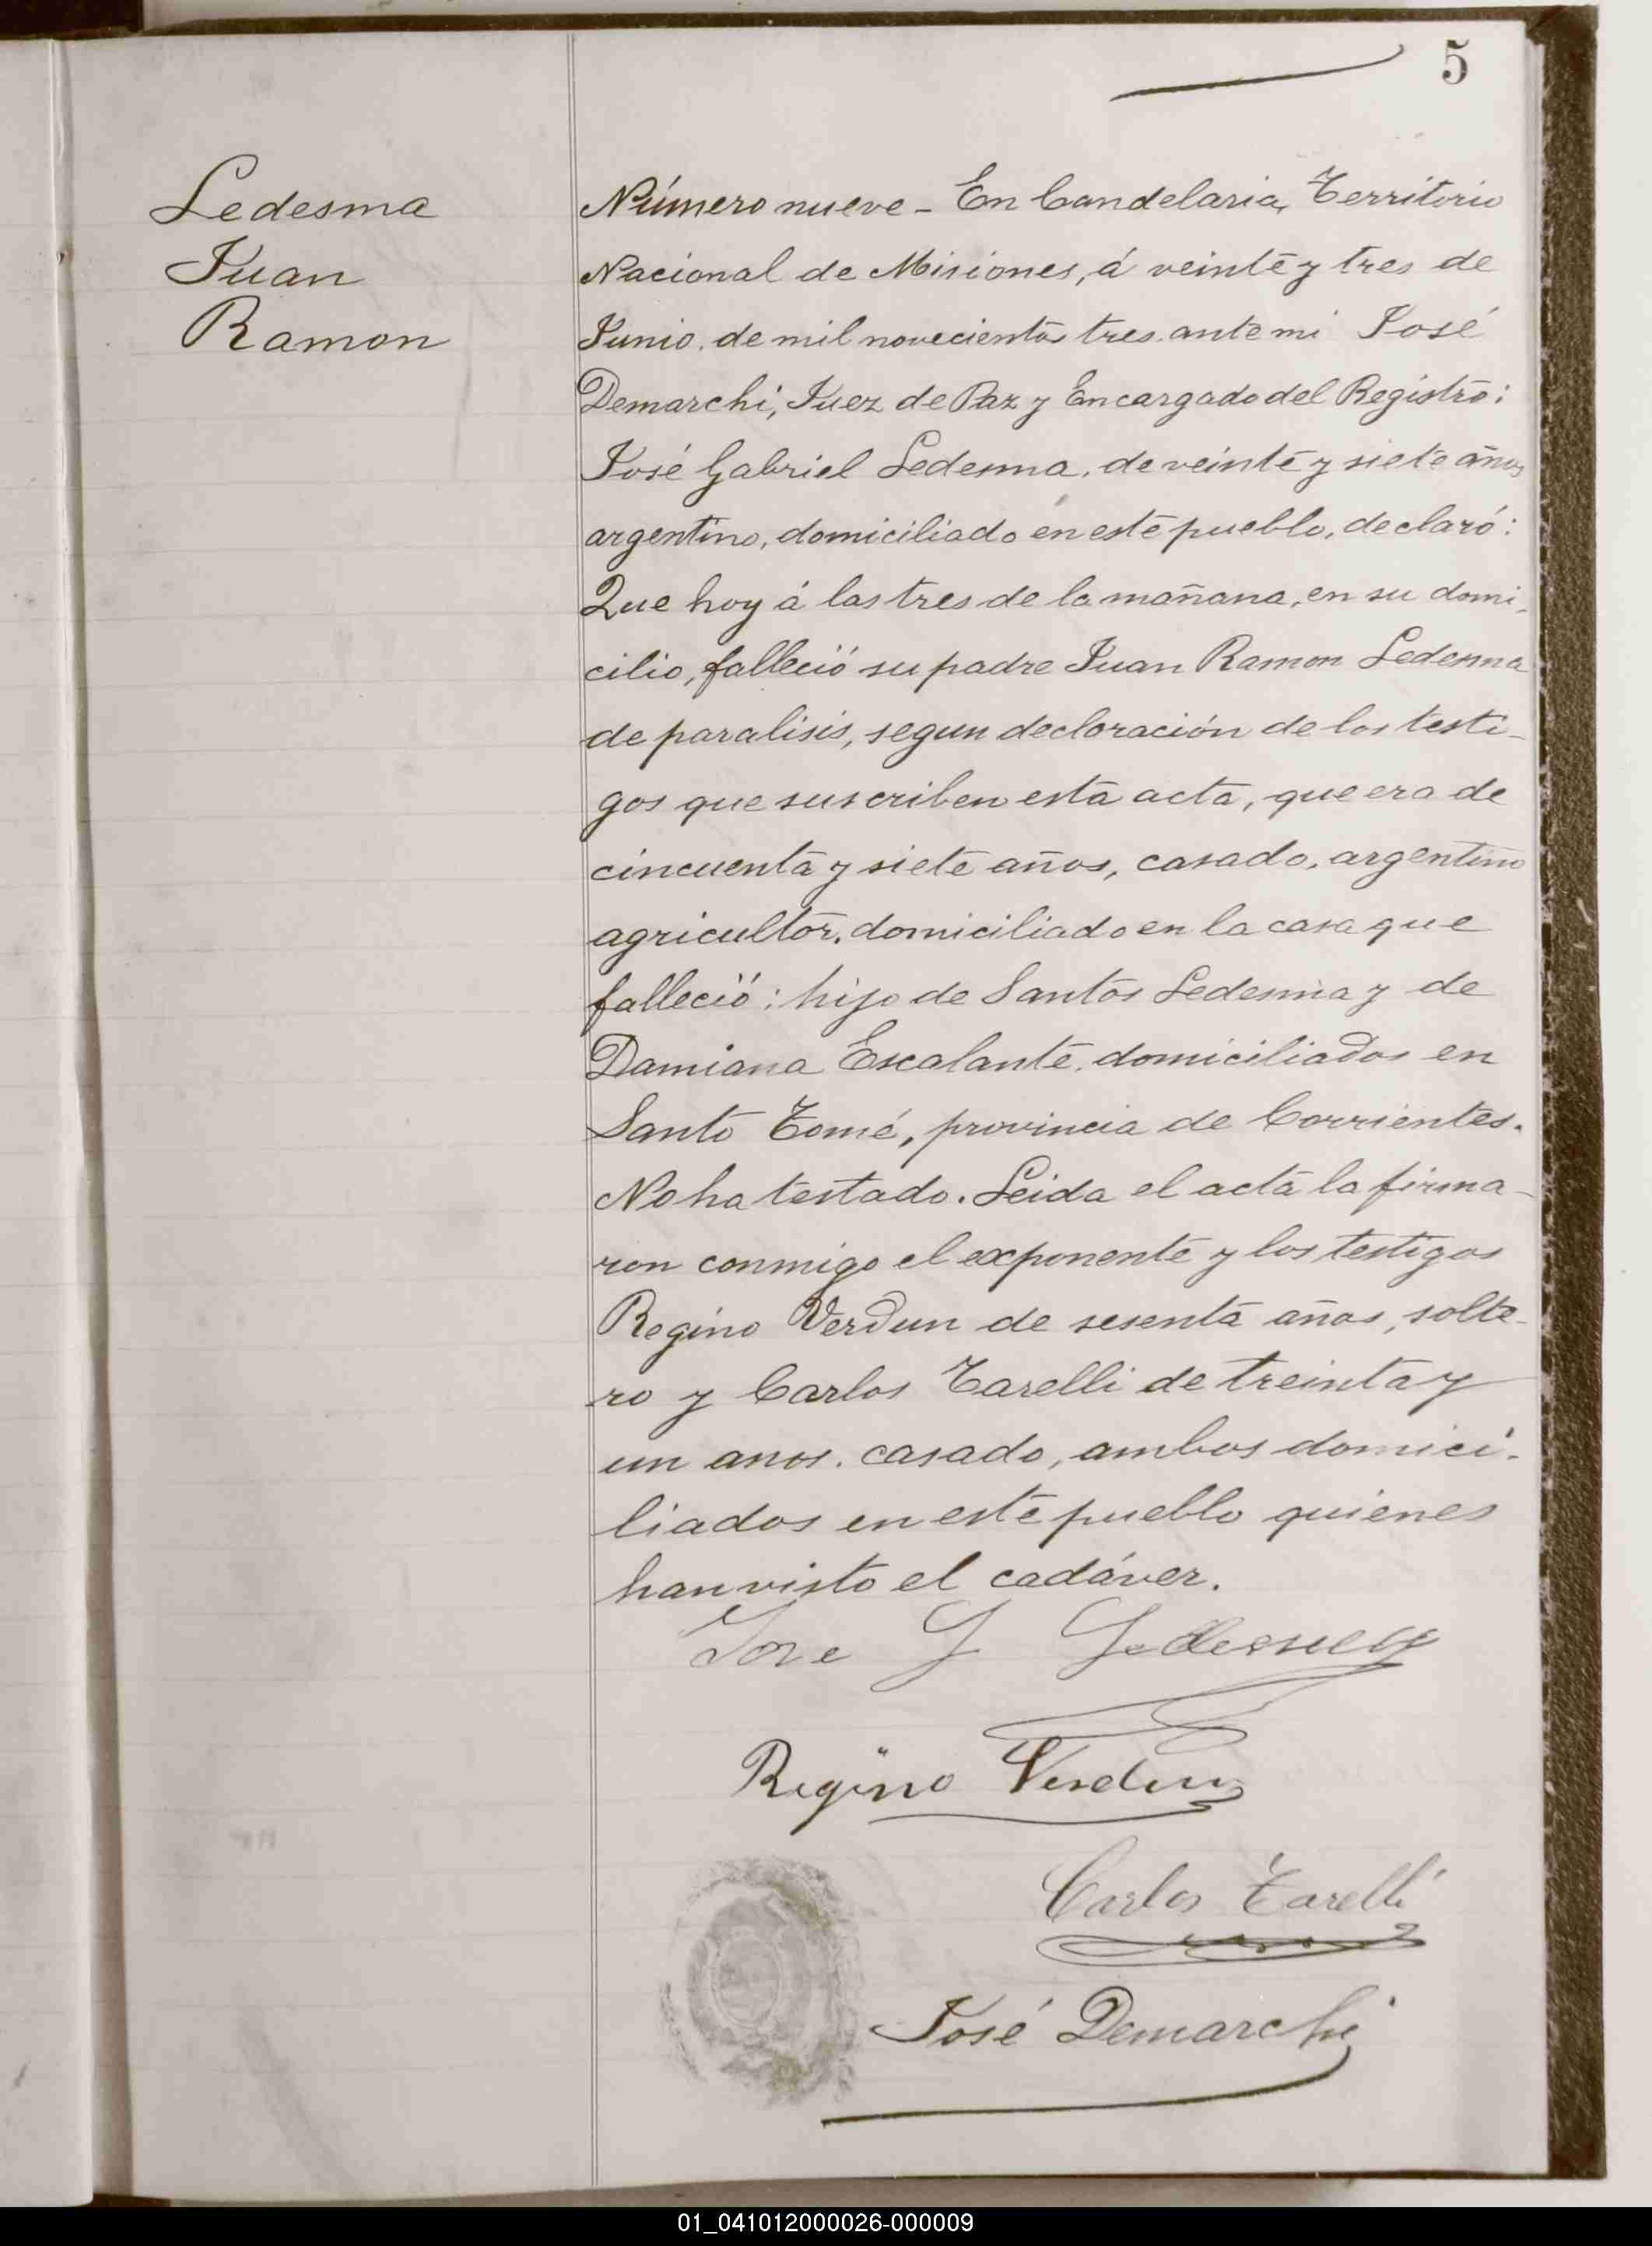 5
Ledesma
Juan
Ramon
Número nueve - En Candelaria, Territorio
Nacional de Misiones, á veinte y tres de
Junio. de mil novecientos tres. ante mi José
Demarchi, Juez de Paz y Encargado del Registro:
José Gabriel Ledesma, de veinte y siete años
argentino, domiciliado en este pueblo, declaró:
Que hoy á las tres de la mañana, en su domi-
cilio, falleció su padre Juan Ramon Ledesma
de paralisis, segun declaración de los testi-
gos que suscriben esta acta, que era de
cincuenta y siete años, casado, argentino
agricultor, domiciliado en la casa que
falleció: hijo de Santos Ledesma y de
Damiana Escalante, domiciliados en
Santo Tomé, provincia de Corrientes.
No ha testado. Leida el acta la firma-
ron conmigo el exponente y los testigos
Regino Verdun de sesenta años, solte-
ro y Carlos Tarelli de treinta y
un anos. casado, ambos domici-
liados en este pueblo quienes
han visto el cadáver.
Jose G Ledesma
Regino Verdun
Carlos Tarelli
José Demarchi
01_041012000026-000009